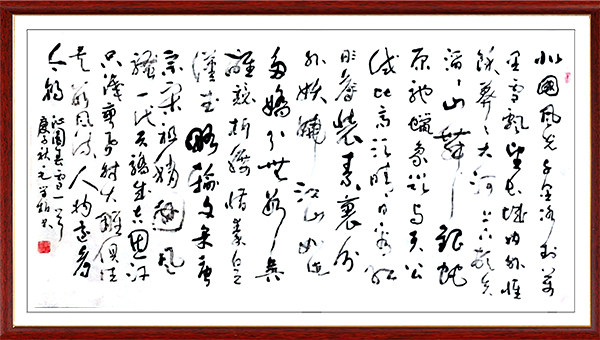 北國風光千里冰封萬
里雪飄望長城内外惟
餘莽〻大河上下頓失
滔〻山舞銀蛇
原馳蠟象欲與天公
試比高須晴日看紅
裝素裹分
外妖嬈江山如此
多嬌引無數英
雄競折腰惜秦皇
漢武略輸文采唐
宗宋祖稍遜風
騷一代天驕成吉思汗
只識彎弓射大雕俱往
矣數風流人物還看
今朝
沁園春雪一首
庚子秋